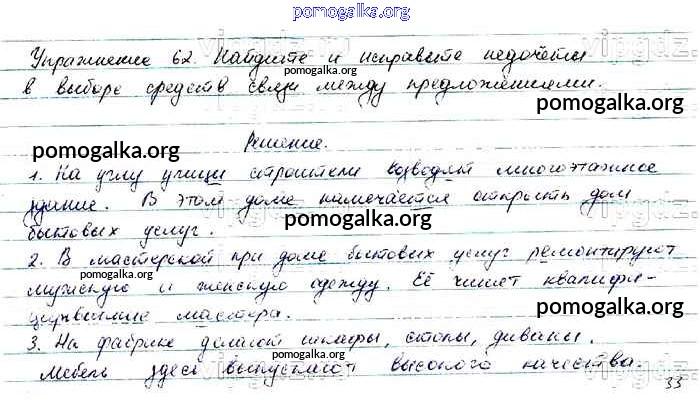 pomogalka.org
Упражнение 62. Найдите и исправьте недочёты
pomogalka.org
в выборе средств связи между предложениями.
pomogalka.org
Решение.
pomogalka.org
1. На углу улицы строители возводят многоэтажное
здание. В этом доме намечается открыть дом
pomogalka.org
бытовых услуг.
2. В мастерской при доме бытовых услуг ремонтируют
pomogalka.org
мужскую и женскую одежду. Её чинят квалифи-
pomogalka.org
цированные мастера.
3. На фабрике делают шкафы, столы, диваны.
pomogalka.org
Мебель здесь выпускают высокого качества.
33